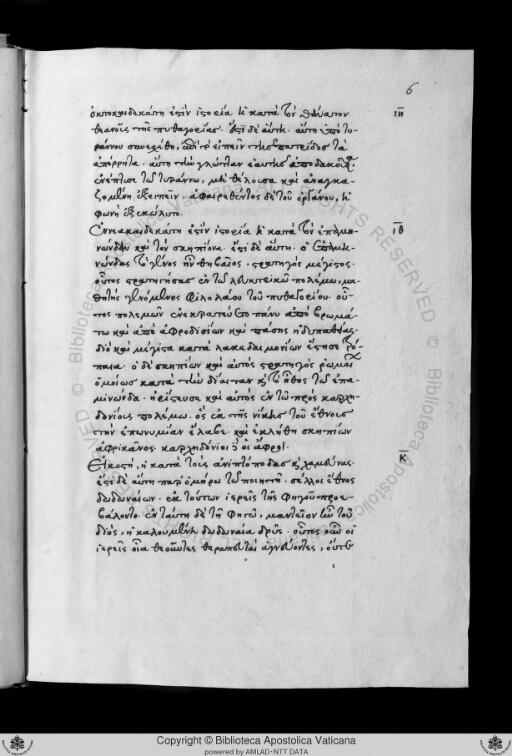 6
ὀκτωκαιδεκάτη ἐστὶν ἱστορία ἡ κατὰ τὸν θάνατον ιη
θεανοῦς τῆς πυθαγορείας. ἔστι δὲ αὕτη. αὕτη ὑπὸ τυ
ράννου συνεσχέθη, ὥστε εἰπεῖν τῆς πατρίδος τὰ
ἀπόρρητα. αὕτη τὴν γλῶτταν ἑαυτῆς ἀποδακοῦσα
ἐνέπτυσε τῷ τυράννῳ, μὴ θέλουσα καὶ ἀναγκα
ζομένη ἐξειπεῖν. ἀφαιρεθέντος δὲ τοῦ ὀργάνου, ἡ
φωνὴ ἐξεκώλυτο.
Ἐννεακαιδεκάτη ἐστὶν ἱστορία ἡ κατὰ τὸν ἐπαμι ιθ
νώνδαν καὶ τὸν σκηπίωνα. ἔστι δὲ αὕτη. ὁ ἐπαμι
νώνδας τὸ γένος ἦν θηβαῖος. στρατηγὸς μέγιστος.
οὗτος στρατηγήσας ἐν τῷ λευκτρικῷ πολέμῳ, μα
θητὴς γενόμενος φιλολάου τοῦ πυθαγορείου. οὕ
τος πολεμῶν ἐνεκρατεύετο πάνυ ἀπὸ βρωμά
των καὶ ἀπὸ ἀφροδισίων καὶ πάσης ἡδυπαθείας.
διὸ καὶ μέγιστα κατὰ λακεδαιμονίων ἔστησε τρό
παια. ὁ δὲ σκηπίων καὶ αὐτὸς στρατηγὸς ῥωμαίων
ὁμοίως κατὰ τὴν δίαιταν καὶ τὸ ἦθος τῷ ἐπα
μινώνδα. ἠρίστευσε καὶ αὐτὸς ἐν τῷ πρὸς καρχη
δονίους πολέμῳ. ὃς ἐκ τῆς νίκης τοῦ ἔθνους
τὴν ἐπωνυμίαν ἔλαβε. καὶ ἐκλήθη σκηπίων
ἀφρικανός. καρχηδόνιοι γὰρ οἱ ἄφροι.
Εἰκοστή, ἡ κατὰ τοὺς ἀνιπτόποδας καὶ χαμεύνας. κ
ἔστι δὲ αὕτη παρ' ὁμήρῳ τῷ ποιητῇ. σέλλοι ἔθνος
δωδωναίων. ἐκ τούτων ἱερεῖς τῇ φηγῷ προε
βάλοντο. ἐν ταύτῃ δὲ τῇ φηγῷ, μαντεῖον ἦν τοῦ
διός, ἡ καλουμένη δωδωναία δρῦς. οὗτοι οὖν οἱ
ἱερεῖς οἷα θεῷ ὄντες θεραπευταὶ ἁγνεύοντες, οὔτε
Copyright © Biblioteca Apostolica Vaticana
powered by AMLAD-NTT DATA